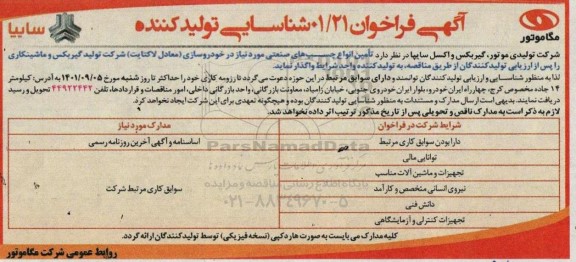 مگاموتور
آگهی فراخوان ۰۱/۲۱ شناسایی تولید کننده
سایپا
شرکت تولیدی موتور، گیربکس و اکسل سایپا در نظر دارد تأمین انواع چسب‌های صنعتی مورد نیاز در خودروسازی (معادل لاکتایت) شرکت تولید گیربکس و ماشینکاری
را پس از ارزیابی تولید کنندگان از طریق مناقصه، به تولید کننده واجد شرایط واگذار نماید.
لذا به منظور شناسایی و ارزیابی تولید کنندگان توانمند و دارای سوابق مرتبط در این حوزه دعوت می‌گردد تا رزومه کاری خود را حداکثر تا روز شنبه مورخ ۱۴۰۱/۰۹/۰۵ به آدرس: کیلومتر
۱۴ جاده مخصوص کرج، چهار راه ایران خودرو، بلوار ایران خودروی جنوبی، خیابان زامیاد، معاونت بازرگانی، واحد بازرگانی داخلی، امور مناقصات و قراردادها، تلفن ۴۴۹۲۲۴۴۲ تحویل و رسید
دریافت نمایند. بدیهی است ارسال مدارک و مستندات به منظور شناسایی تولید کنندگان بوده و هیچگونه تعهدی برای این شرکت ایجاد نخواهد کرد.
لازم به ذکر است به مدارک ناقص و تحویلی پس از تاریخ مذکور ترتیب اثر داده نخواهد شد.
شرایط شرکت در فراخوان
مدارک مورد نیاز
دارا بودن سوابق کاری مرتبط
اساسنامه و آگهی آخرین روزنامه رسمی
توانایی مالی
تجهیزات و ماشین آلات مناسب
نیروی انسانی متخصص و کارآمد
سوابق کاری مرتبط شرکت
دانش فنی
تجهیزات کنترلی و آزمایشگاهی
کلیه مدارک می‌بایست به صورت هارد کپی (نسخه فیزیکی) توسط تولید کنندگان ارائه گردد.
روابط عمومی شرکت مگاموتور
ParsNamadData
پایگاه اطلاع رسانی مناقصه و مزایده
۰۲۱-۸۸۳۴۹۶۷۰-۵